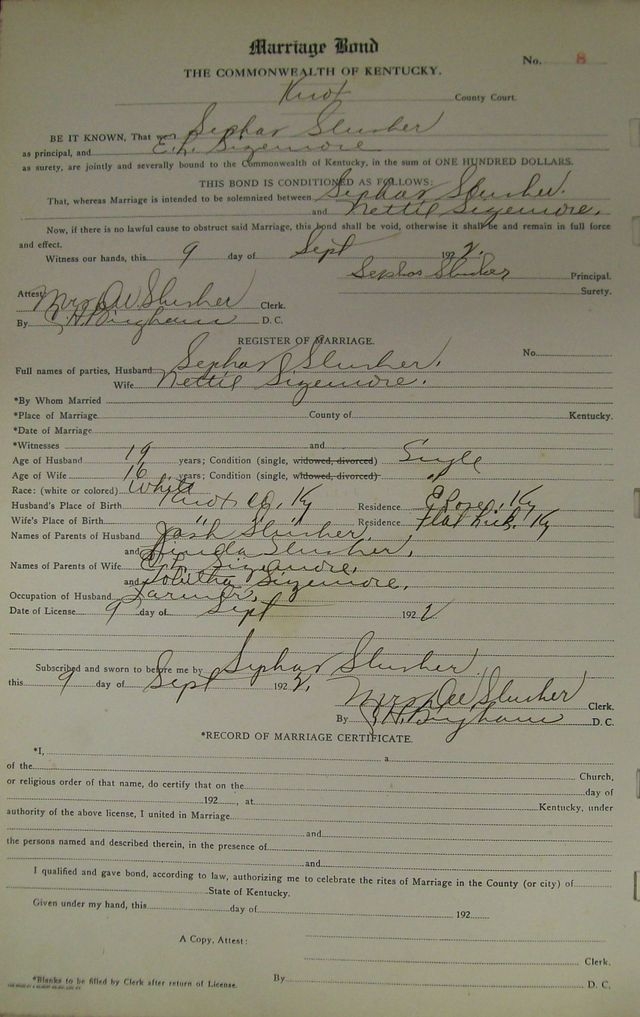 Marriage Bond
No. 8
THE COMMONWEALTH OF KENTUCKY.
Knox County Court.
BE IT KNOWN, That we, Sephas Slusher
as principal, and E. L. Sizemore
as surety, are jointly and severally bound to the Commonwealth of Kentucky, in the sum of ONE HUNDRED DOLLARS.
THIS BOND IS CONDITIONED AS FOLLOWS:
That, whereas Marriage is intended to be solemnized between Sephas Slusher.
and Nettie Sizemore.
Now, if there is no lawful cause to obstruct said Marriage, this bond shall be void, otherwise it shall be and remain in full force
and effect.
Witness our hands, this 9 day of Sept 1922.
Sephas Slusher Principal.
Surety.
Attest: Mrs. D. W. Slusher Clerk.
By Bingham D. C.
REGISTER OF MARRIAGE.
No.
Full names of parties, Husband Sephas Slusher.
Wife Nettie Sizemore.
*By Whom Married
*Place of Marriage County of Kentucky.
*Date of Marriage
*Witnesses and
Age of Husband 19 years; Condition (single, widowed, divorced) Single
Age of Wife 16 years; Condition (single, widowed, divorced) "
Race: (white or colored) White
Husband's Place of Birth Knox Co, Ky Residence Ky
Wife's Place of Birth " " " Residence Flat Lick, Ky
Names of Parents of Husband Josh Slusher,
and Slusher,
Names of Parents of Wife E. L. Sizemore,
and Sizemore,
Occupation of Husband Farmer,
Date of License 9 day of Sept 1922
Subscribed and sworn to before me by Sephas Slusher
this 9 day of Sept 1922.
Mrs. D. W. Slusher Clerk.
By Bingham D. C.
*RECORD OF MARRIAGE CERTIFICATE.
*I, a
of the Church,
or religious order of that name, do certify that on the day of
192 , at Kentucky, under
authority of the above license, I united in Marriage
and
the persons named and described therein, in the presence of
and
I qualified and gave bond, according to law, authorizing me to celebrate the rites of Marriage in the County (or city) of
State of Kentucky.
Given under my hand, this day of 192
A Copy, Attest:
Clerk.
*Blanks to be filled by Clerk after return of License.
By D. C.